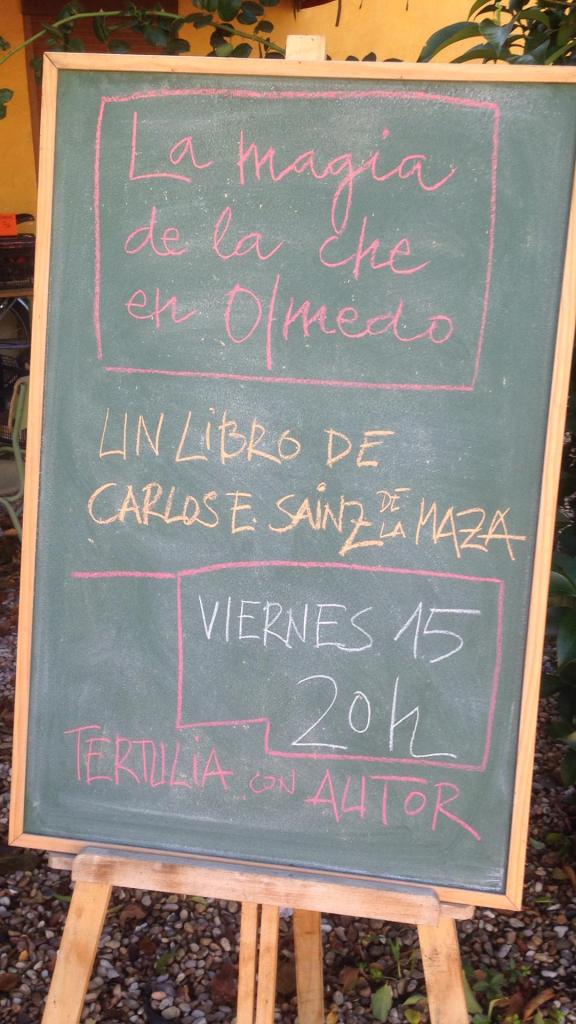 La magia
de la che
en Olmedo
UN LIBRO DE
CARLOS E. SAINZ DE LA MAZA
VIERNES 15
20h
TERTULIA CON AUTOR